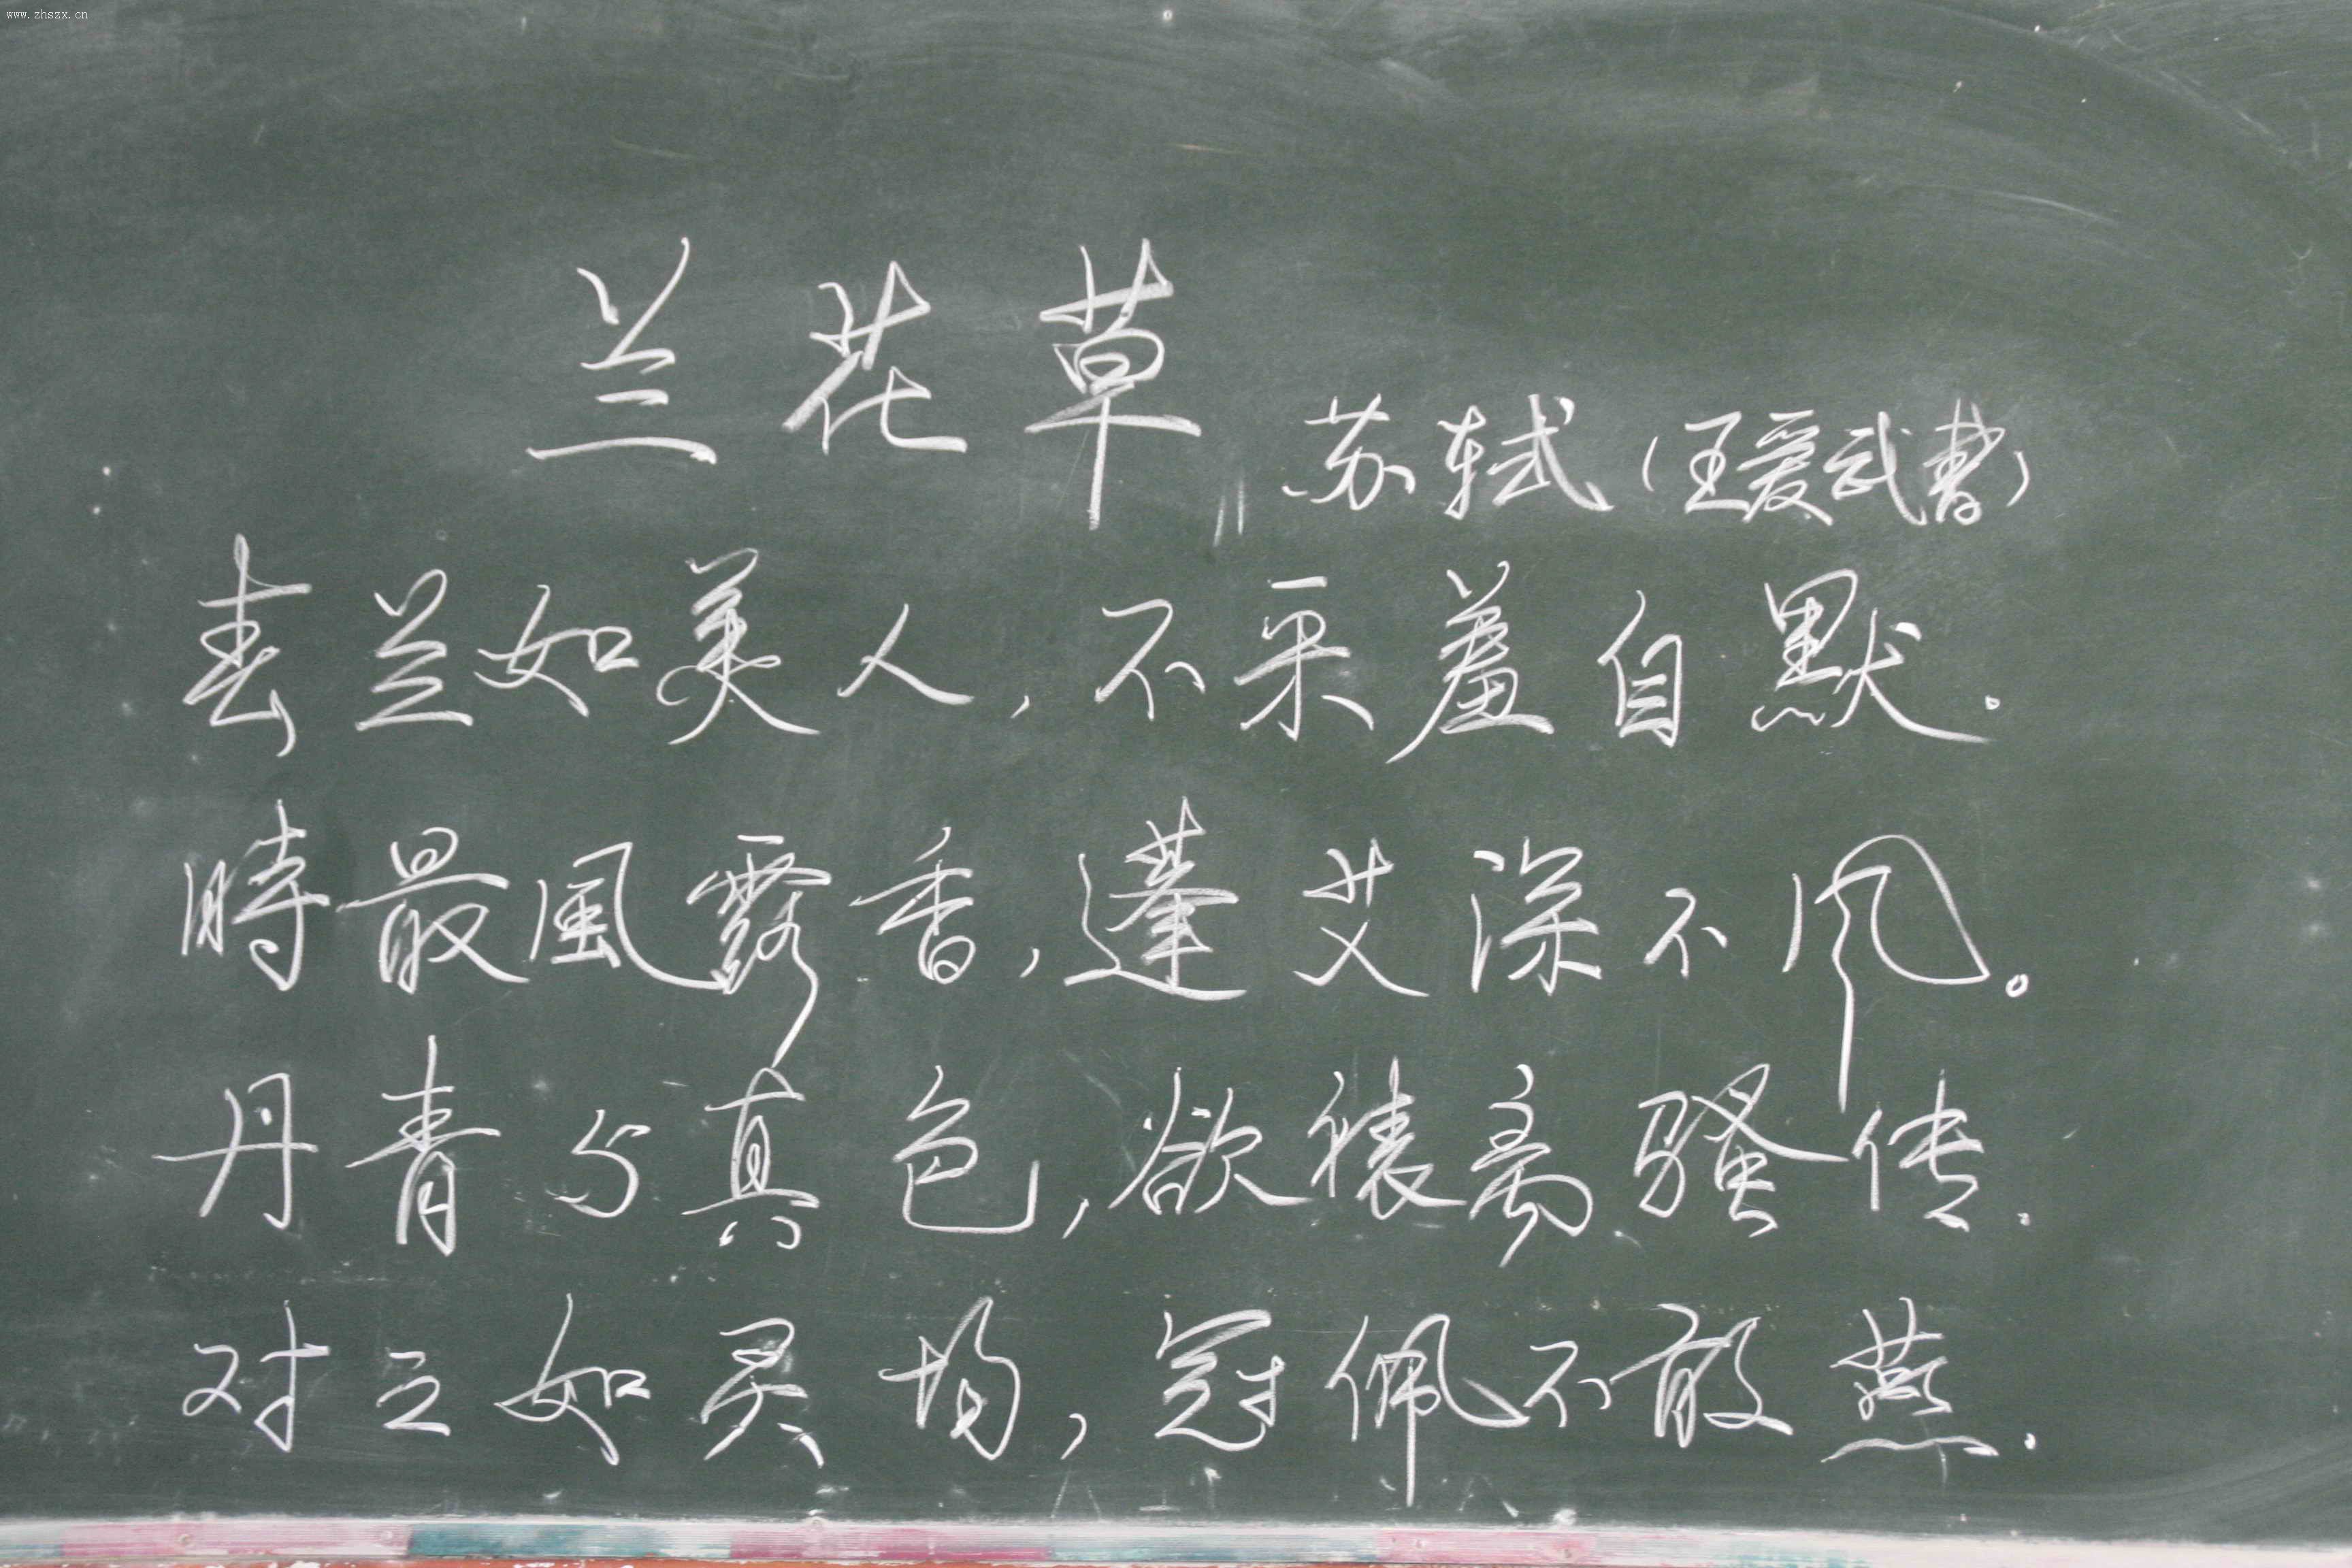 www.zhszx.cn
兰花草
苏轼(王爱武書)
春兰如美人,不采羞自默.
時最風露香,蓬艾深不。
丹青与真色,欲裱离骚传.
对之如灵均,冠佩不敢燕.